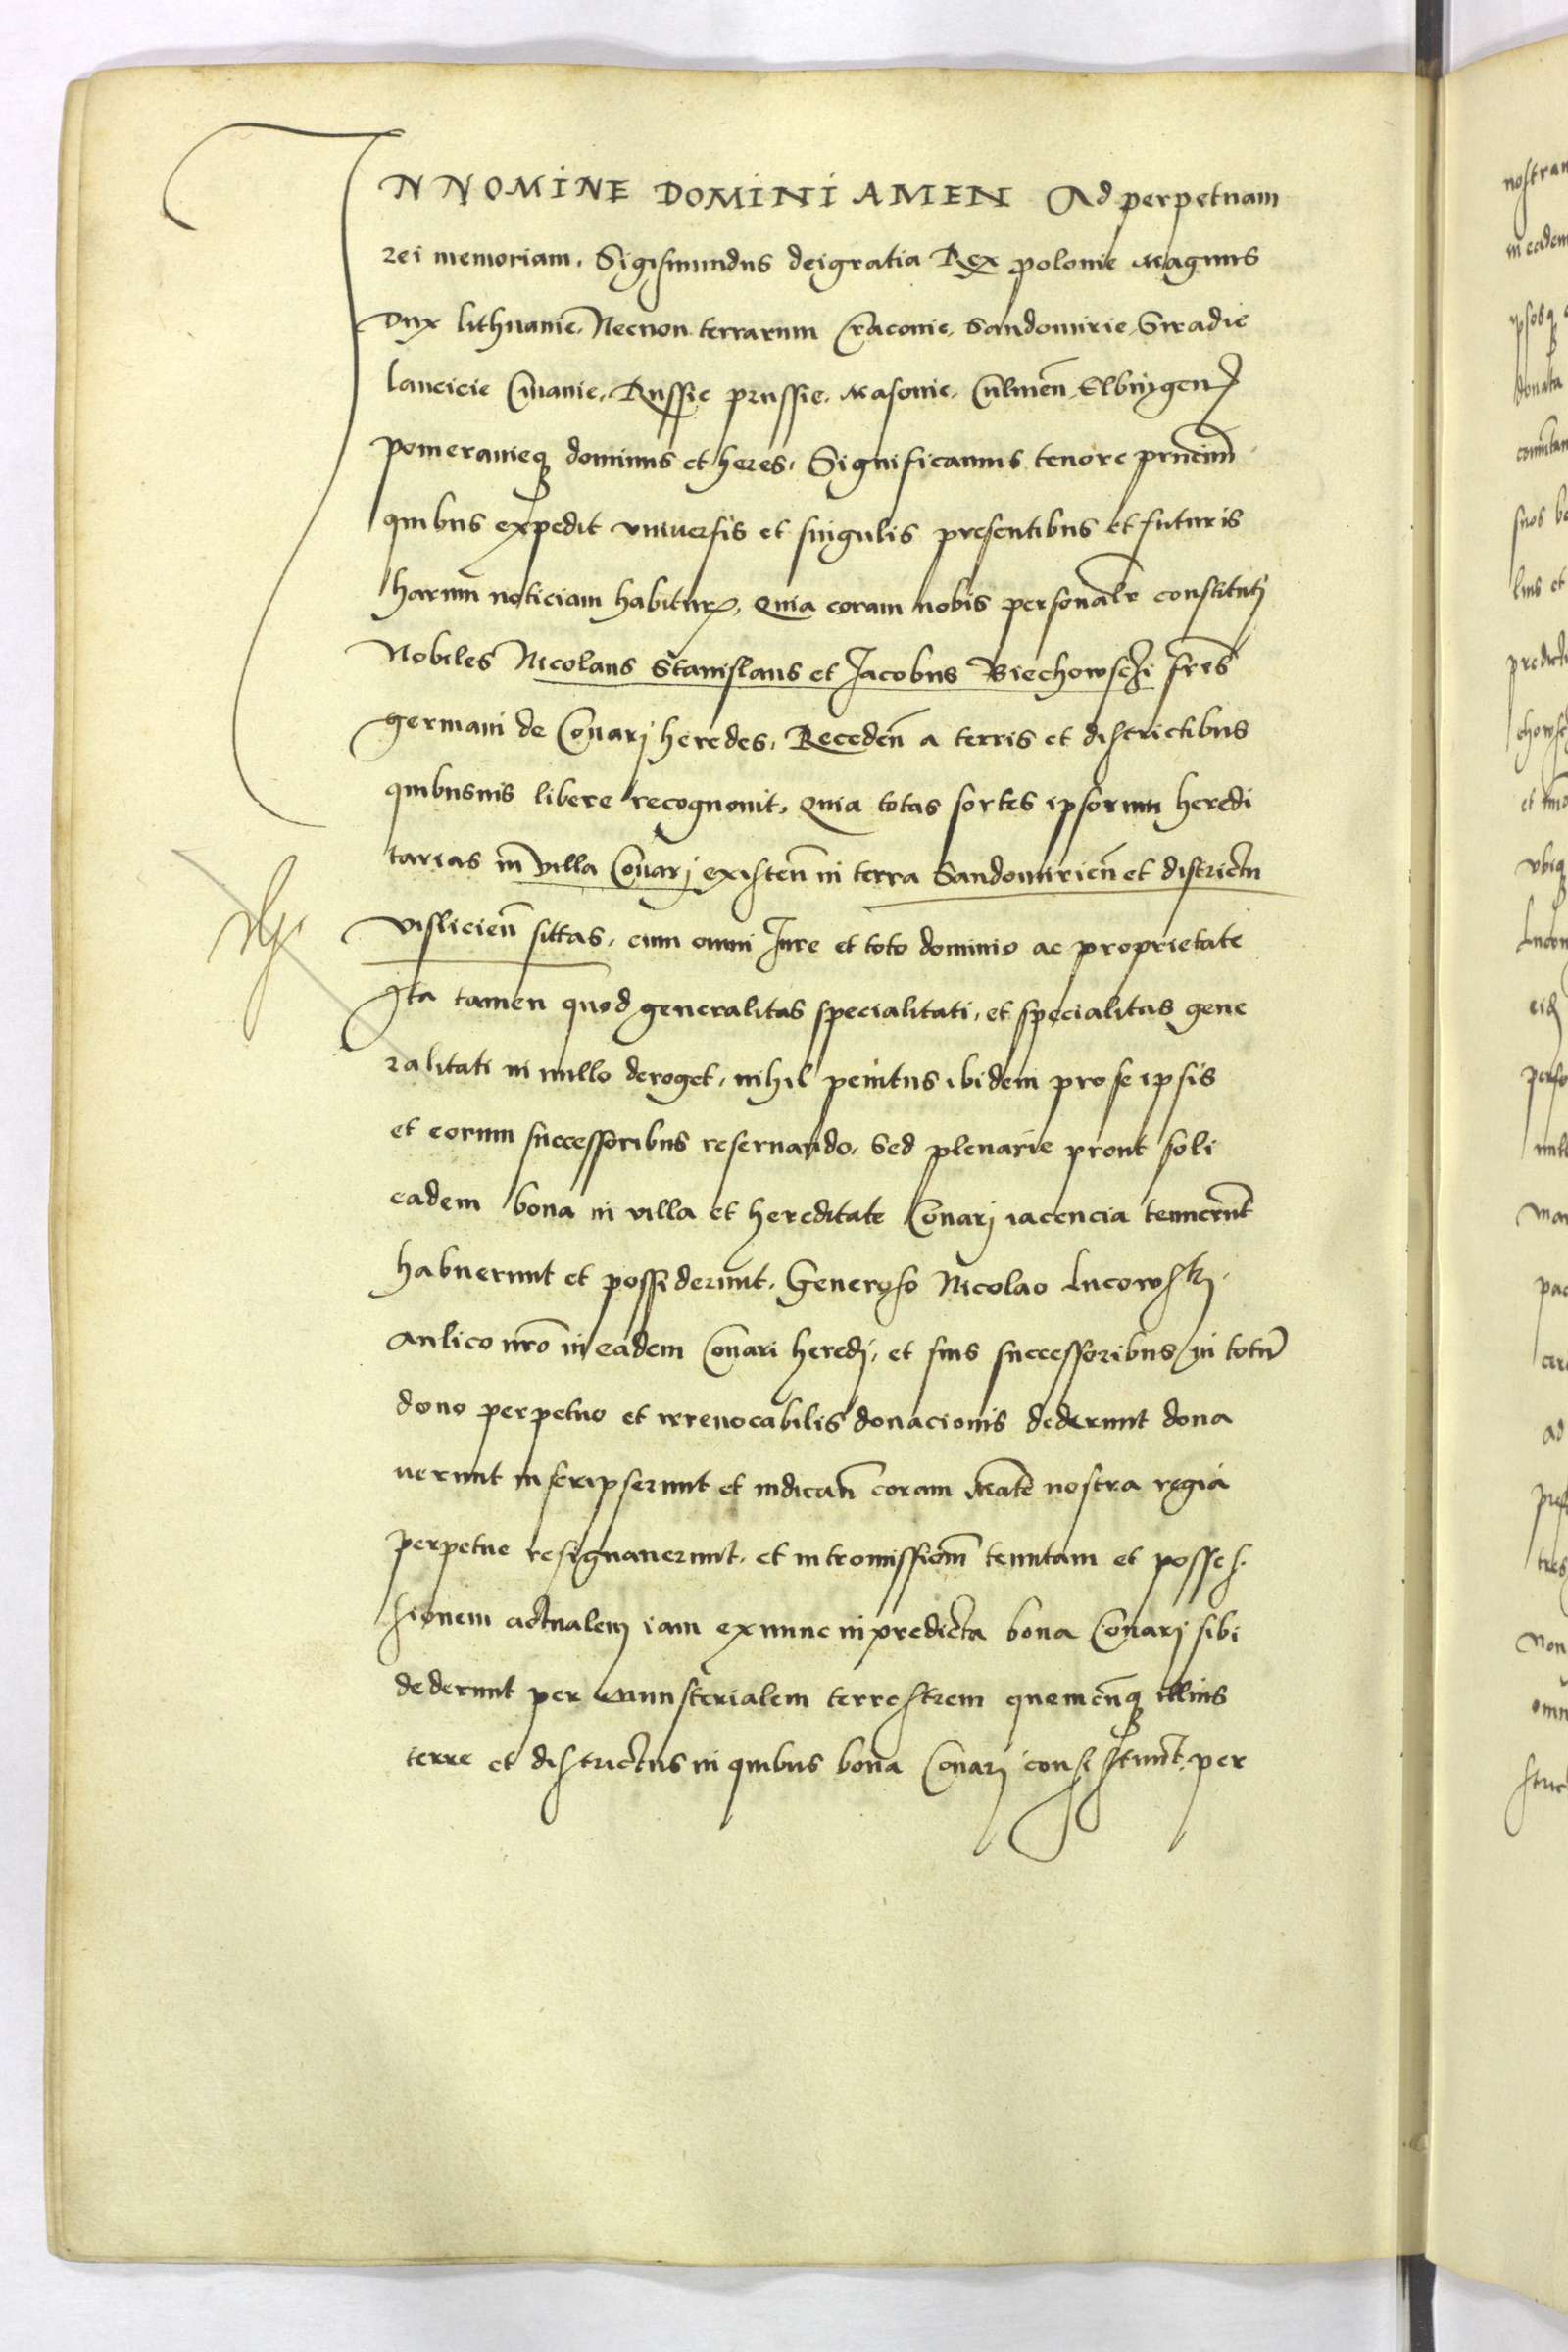 IN NOMINE DOMINI AMEN Ad perpetuam
rei memoriam. Sigismundus deigratia Rex polonie Magnus
Dux lithuanie, Necnon terrarum Cracouie, Sandomirie, Siradie
lancicie Cuiauie, Russie prussie, Masouie, Culmeñ Elbingeñ
pomeranieq dominus et heres, Significamus tenore pñcium
quibus expedit vniuersis et singulis presentibus et futuris
harum noticiam habitur, Quia coram nobis personalr constituti
Nobiles Nicolaus Stanislaus et Jacobus Biechowsczi frẽs
germani de Conarj heredes, Recedeñ a terris et districtibus
quibusuis libere recognouit, Quia totas sortes ipsorum heredi
tarias in villa Conarj existeñ in terra Sandomirieñ et districtu
visliciеñ sittas, cum omni Jure et toto dominio ac proprietate
Ita tamen quod generalitas specialitati, et specialitas gene
ralitati in nullo deroget, nihil penitus ibidem pro se ipsis
et eorum successoribus reseruando, Sed plenarie prout soli
eadem bona in villa et hereditate Conarj iacencia tenuerũt
habuerunt et possiderunt, Generoso Nicolao Lucowskj,
Aulico nrõ in eadem Conari heredj, et suis successoribus in totũ
dono perpetuo et irreuocabilis donacionis dederunt dona
uerunt inscripserunt et indicañ coram Matẽ nostra regia
perpetue resignauerunt, et intromissioẽm tenutam et posses
sionem actualem iam exnunc in predicta bona Conarj sibi
dederunt per ministerialem terrestrem quemcũq illius
terre et districtus in quibus bona Conarj consistunt, per
nostram
in eadem
ipsosq
donata
suos bo
lius et
predicti
chowsc
vbiq
Lucow
eid
perso
ad
tres
Non
omn
stric